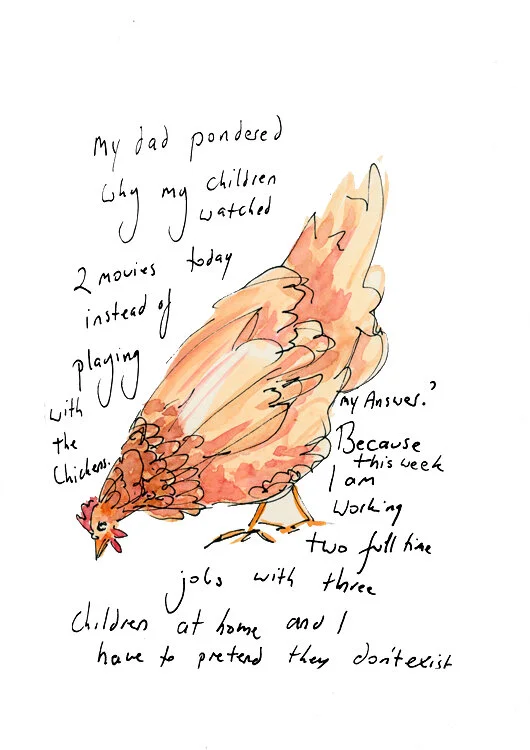 My dad pondered
why my children
watched
2 movies today
instead of
playing
with
the
Chickens.
my Answer?
Because
this week
I am
working
two full time
jobs with three
children at home and I
have to pretend they don't exist